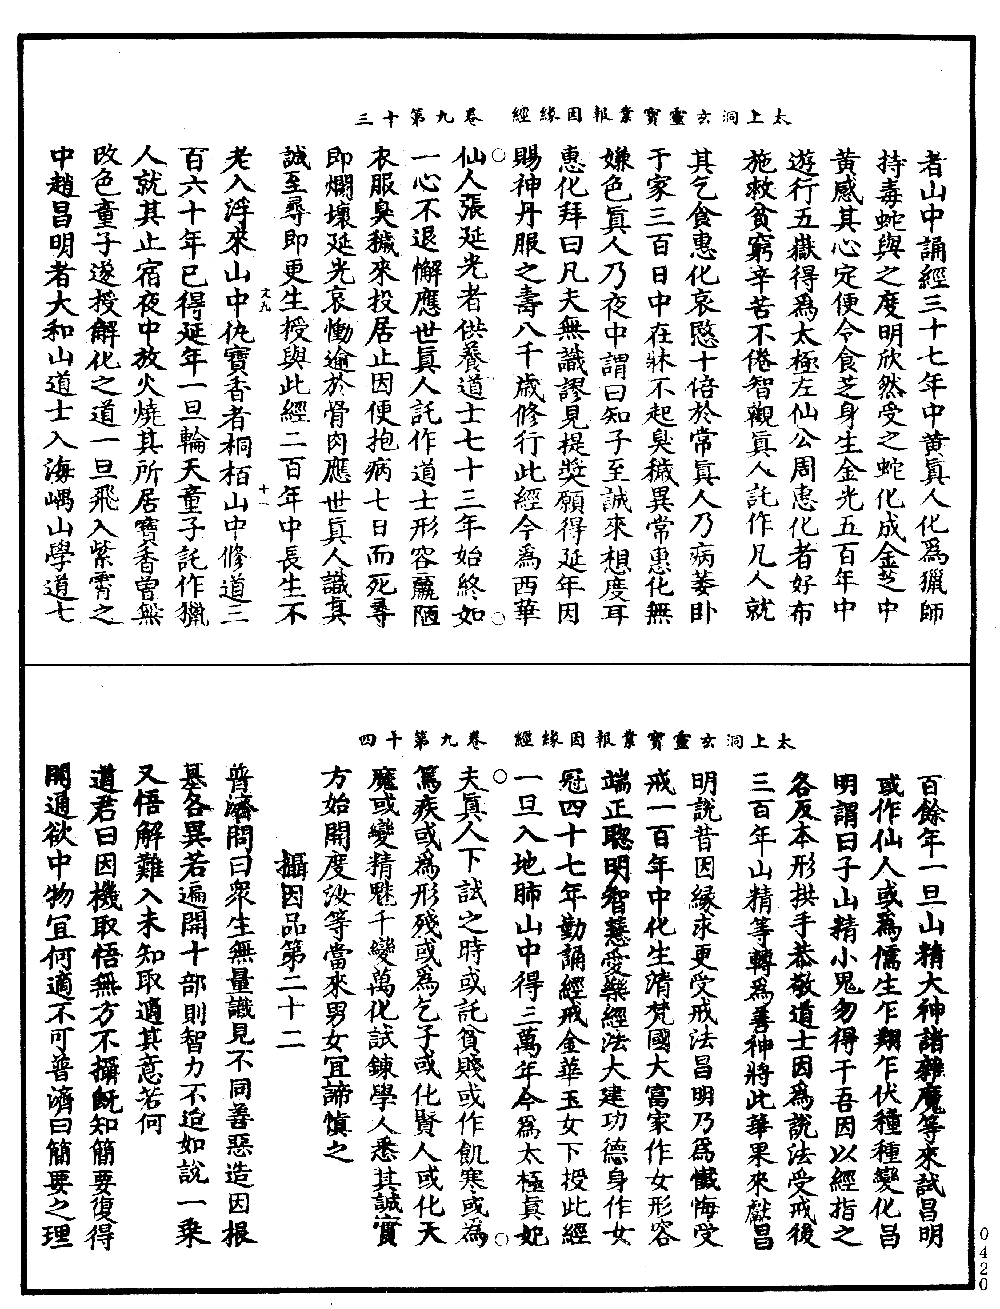 太上洞玄靈寶業報因緣經　卷九第十三
者山中誦經三十七年中黃真人化爲獵師
持毒蛇與之度明欣然受之蛇化成金芝中
黃感其心定便令食芝身生金光五百年中
遊行五嶽得爲太極左仙公周惠化者好布
施救貧窮辛苦不倦智觀眞人託作凡人就
其乞食惠化哀愍十倍於常眞人乃病萎卧
于家三百日中在牀不起臭穢異常惠化無
嫌色眞人乃夜中謂曰知子至誠來想度耳
惠化拜曰凡夫無識謬見提奬願得延年因
賜神丹服之壽八千歲修行此經今爲西華
仙人張延光者供養道士七十三年始終如
一心不退懈應世眞人託作道士形容麤陋
衣服臭穢來投居止因便抱病七日而死尋
即爛壞延光哀慟逾於骨肉應世眞人識其
誠至尋即更生授與此經二百年中長生不
文九　十一
老入浮來山中仇寶香者桐栢山中修道三
百六十年已得延年一旦輪天童子託作獵
人就其止宿夜中放火燒其所居寶香曾無
改色童子遂授解化之道一旦飛入紫霄之
中趙昌明者大和山道士入海嵎山學道七
太上洞玄靈寶業報因緣經　卷九第十四
百餘年一旦山精大神諸雜魔等來試昌明
或作仙人或爲儒生乍翔乍伏種種變化昌
明謂曰子山精小鬼勿得干吾因以經指之
各反本形拱手恭敬道士因爲說法受戒後
三百年山精等轉爲善神將此華果來獻昌
明說昔因緣求更受戒法昌明乃爲懺悔受
戒一百年中化生清梵國大富家作女形容
端正聰明智慧愛樂經法大建功德身作女
冠四十七年勤誦經戒金華玉女下授此經
一旦入地肺山中得三萬年今爲太極眞妃
夫眞人下試之時或託貧賤或作飢寒或爲
篤疾或爲形殘或爲乞子或化賢人或化天
魔或變精魅千變萬化試鍊學人悉其誠實
方始開度汝等當來男女宜諦慎之
攝因品第二十二
普濟問曰衆生無量識見不同善惡造因根
基各異若遍開十部則智力不迨如說一乘
又悟解難入未知取適其意若何
道君曰因機取悟無方不攝旣知簡要復得
開通欲中物宜何適不可普濟曰簡要之理
0420